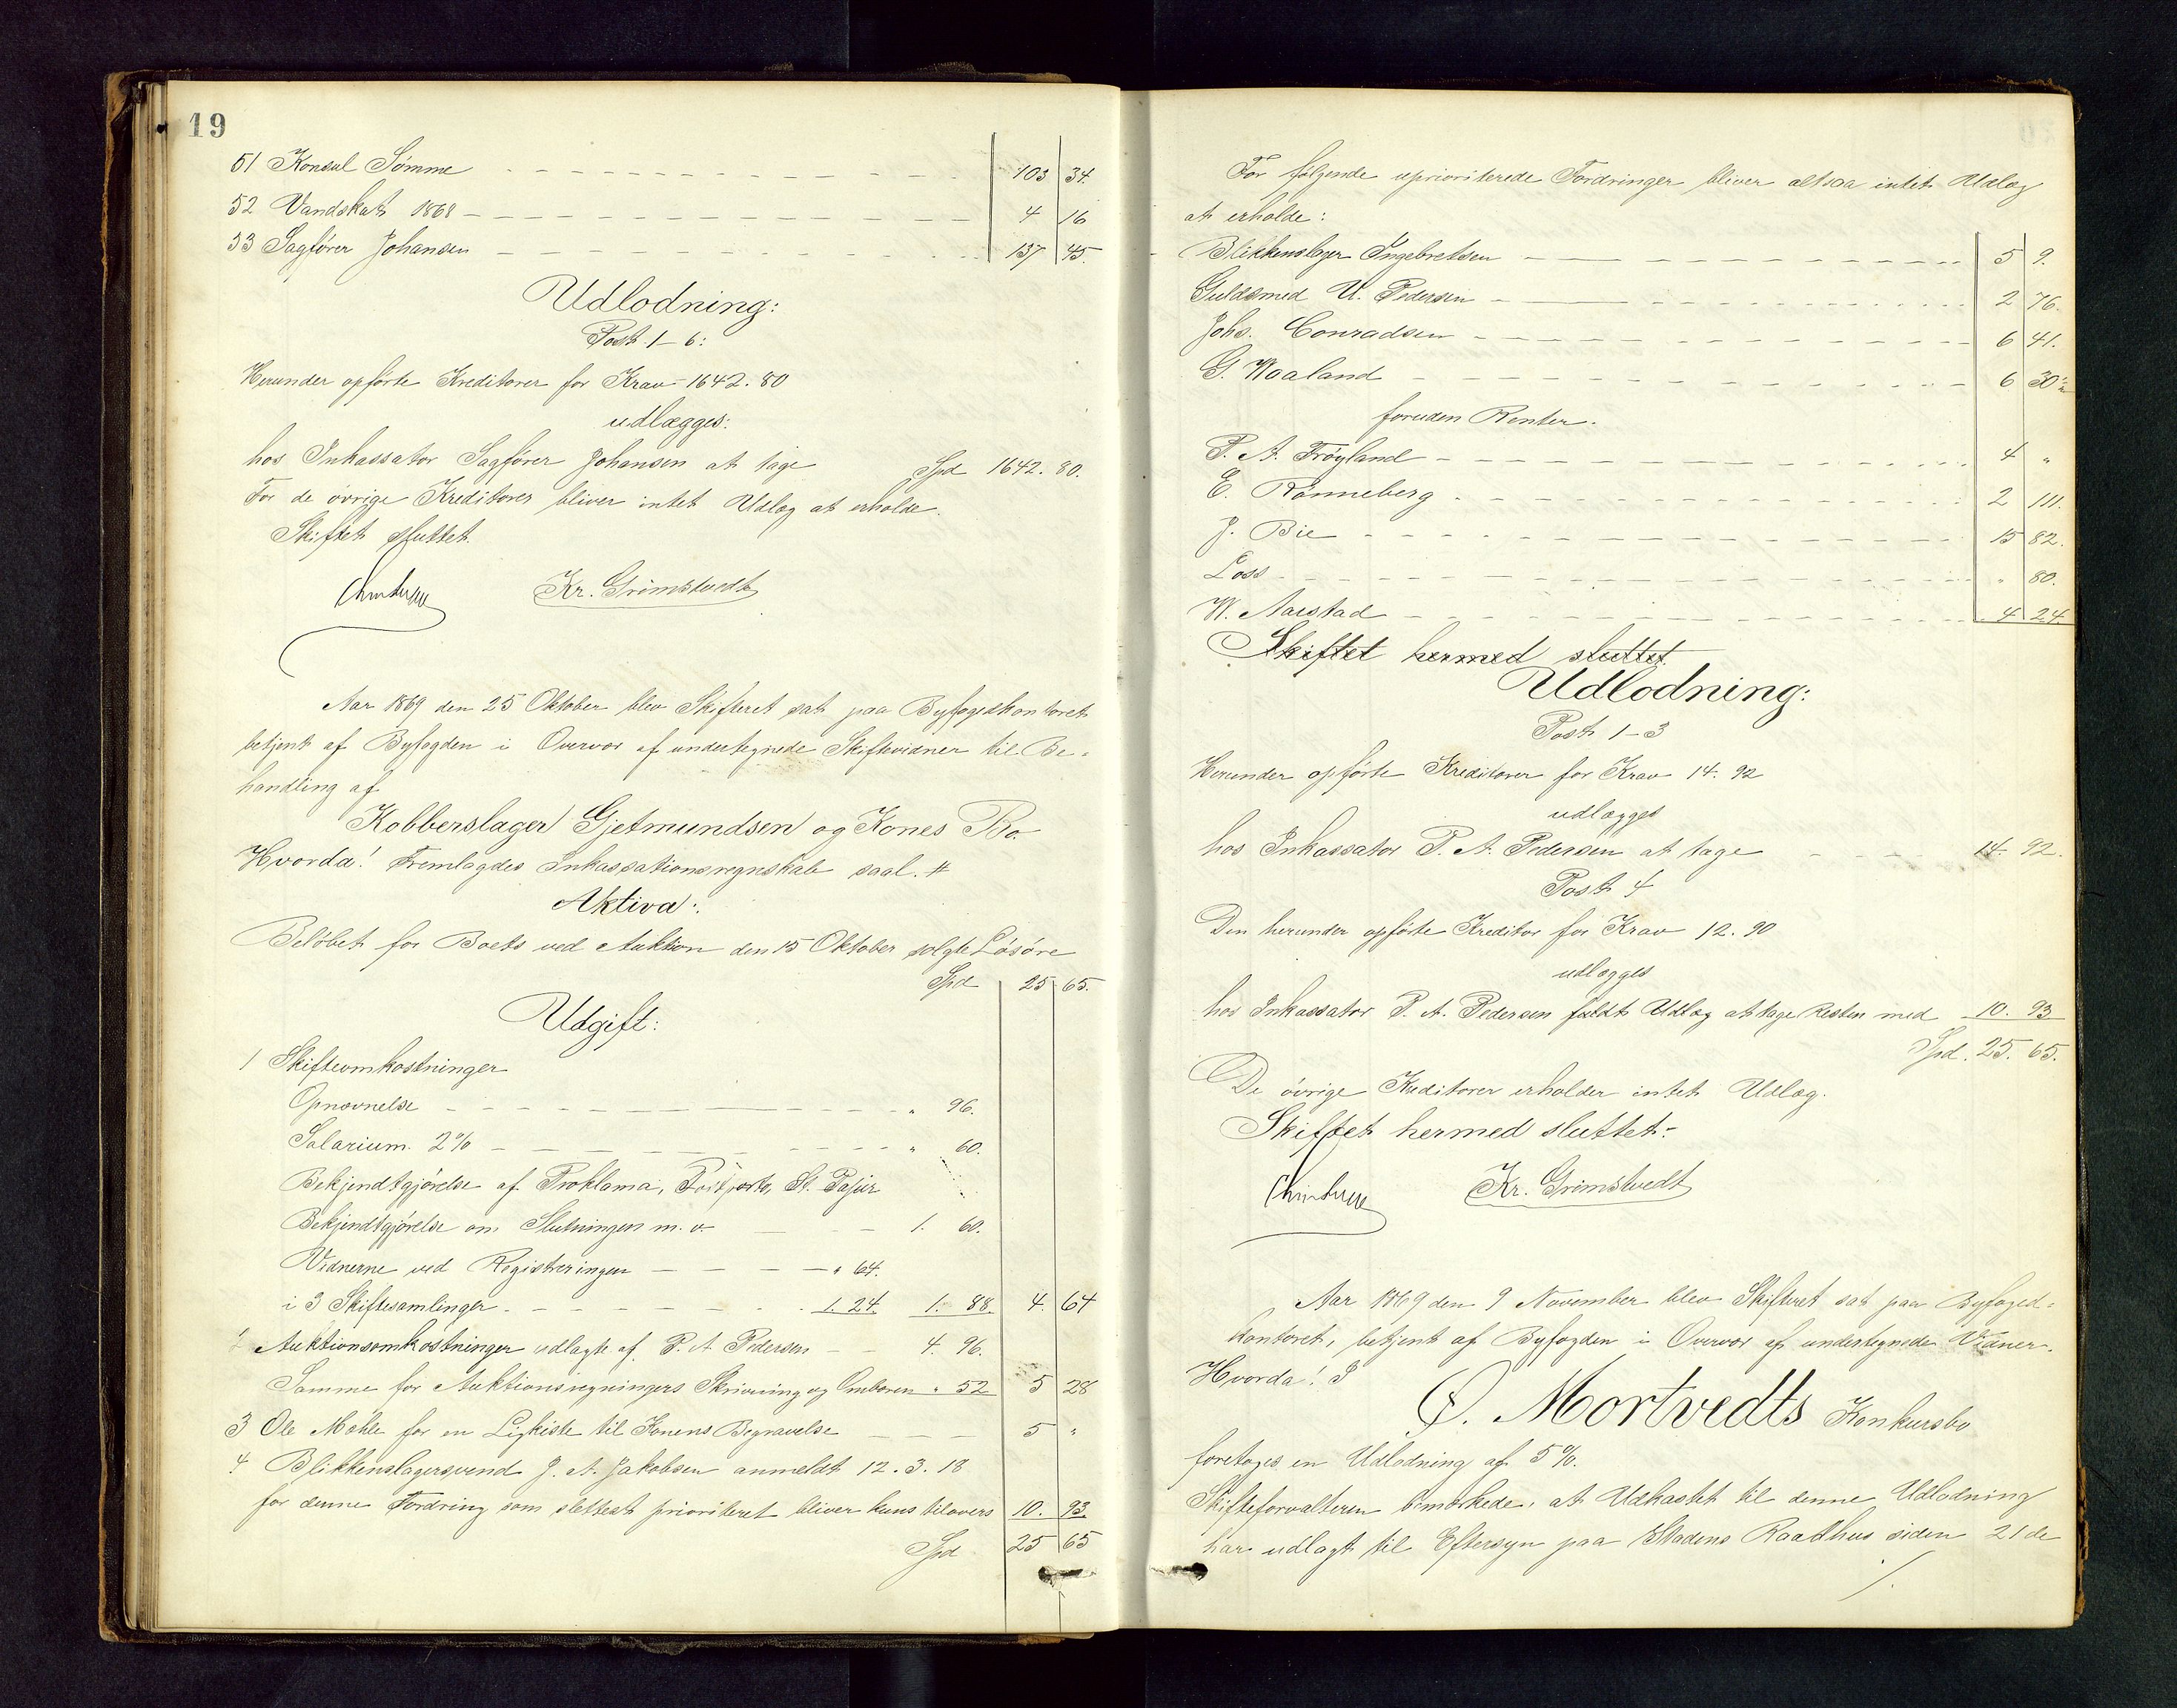 19
51 Konsul Sømme 103 34.
52 Vandskat 1868 4 16
53 Sagfører Johansen 137 45.
Udlodning:
Post 1-6:
Herunder opførte Kreditorer for Krav 1642. 80
udlægges:
hos Inkassator Sagfører Johansen at tage Spd 1642. 80.
For de øvrige Kreditorer bliver intet Udlæg at erholde.
Skiftet sluttet.
Kr. Grimstvedt
Aar 1869 den 25 Oktober blev Skifteret sat paa Byfogedkontoret
betjent af Byfogden i Overvær af undertegnede Skiftevidner til Be-
handling af
Kobberslager Gjetmundsen og Kones Bo.
Hvorda! Fremlagdes Inkassationsregnskab saal. #
Aktiva:
Beløbet for Boets ved Auktion den 15 Oktober solgte Løsøre
Spd 25 65.
Udgift:
1 Skifteomkostninger
Opnævnelse " 96.
Salarium 2% " 60.
Bekjendtgjørelse af Proklama, Postporto, St. Papir
Bekjendtgjørelse om Slutningen m. v. 1. 60.
Vidnerne ved Registreringen " 64.
i 3 Skiftesamlinger 1. 24. 1. 88. 4. 64
2 Auktionsomkostninger udlagte af P. A. Pedersen 4. 96.
Samme for Auktionsregningers Skrivning og Ombæren " 52 5 28
3 Ole Møhle for en Ligkiste til Konens Begravelse 5 "
4 Blikkenslagersvend J. A. Jakobsen anmeldt 12. 3. 18
for denne Fordring som slettest prioriteret bliver kuns tilovers 10. 93.
Spd 25 65
For følgende uprioriterede Fordringer bliver altsaa intet Udlæg
at erholde:
Blikkenslager Ingebretsen 5 9.
Guldsmed U. Pedersen 2 76.
Johs. Conradsen 6 41.
G. Waaland 6 30
foruden Renter.
P. A. Frøyland 4 "
E. Rønneberg 2 111.
J. Bie 15 82.
Loss " 80.
W. Aarstad 4 24
Skiftet hermed sluttet
Udlodning:
Post 1-3
Herunder opførte Kreditorer for Krav 14. 92
udlægges
hos Inkassator P. A. Pedersen at tage 14. 92.
Post 4
Den herunder opførte Kreditor for Krav 12. 90
udlægges
hos Inkassator P. A. Pedersen fuldt Udlæg at tage Resten med 10. 93
Spd. 25. 65.
De øvrige Kreditorer erholder intet Udlæg.
Skiftet hermed sluttet.
Kr. Grimstvedt
Aar 1869 den 9 November blev Skifteret sat paa Byfoged-
kontoret, betjent af Byfogden i Overvær af undertegnede Vidner.
Hvorda! I
O. Mortvedts Konkursbo
foretoges en Udlodning af 5%.
Skifteforvalteren bemærkede, at Udkastet til denne Udlodning
har udlagt til Eftersyn paa Stadens Raadhus siden 21de
/.